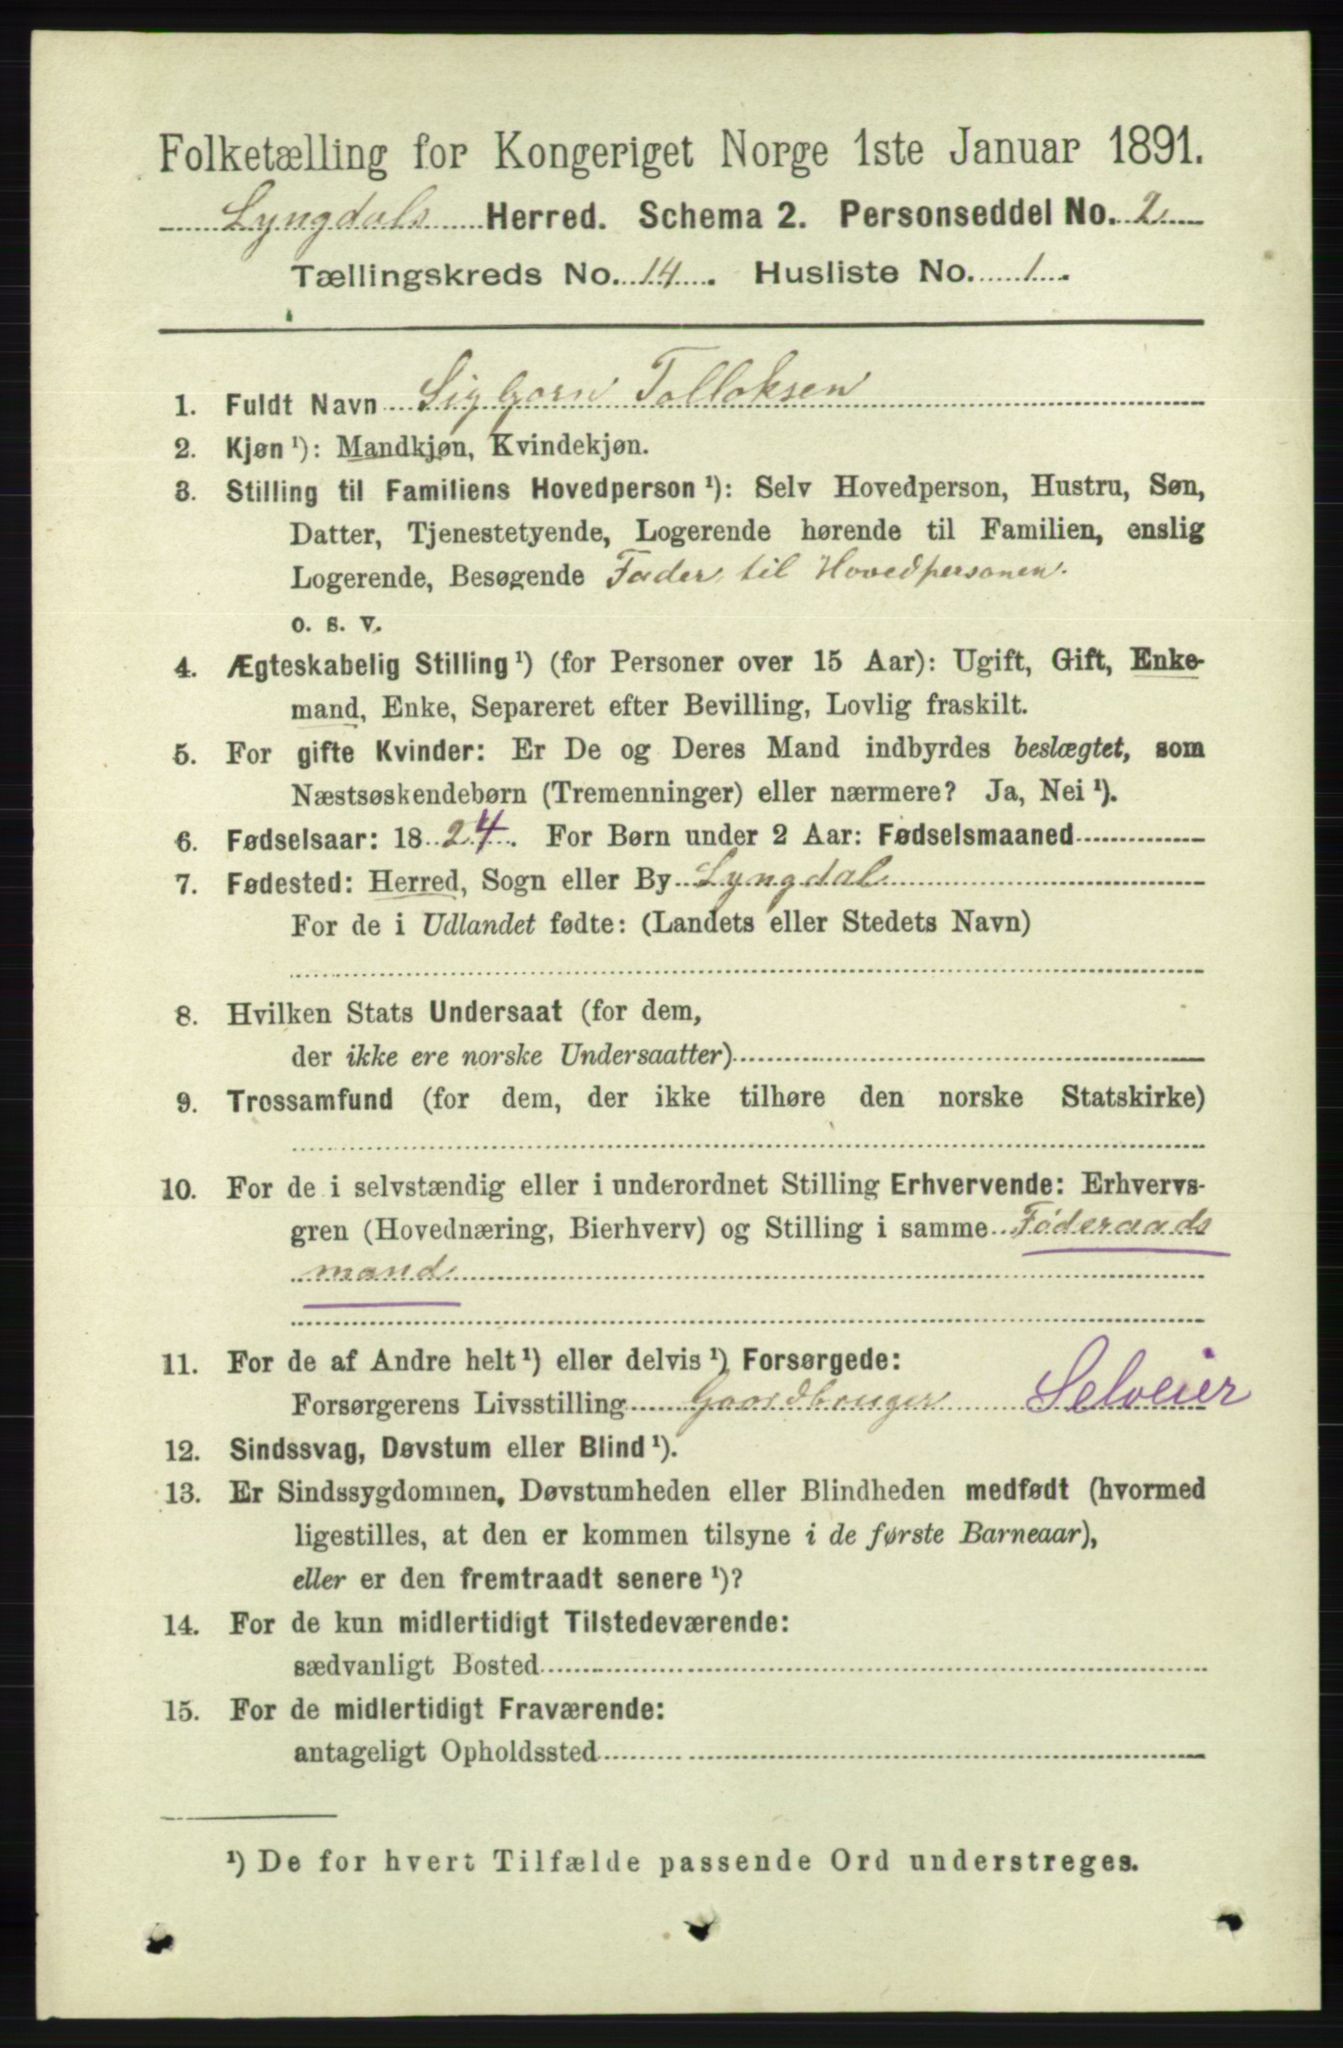 Folketælling for Kongeriget Norge 1ste Januar 1891.
Lyngdals Herred. Schema 2. Personseddel No. 2.
Tællingskreds No. 14. Husliste No. 1.
1. Fuldt Navn Sigbjørn Tolloksen
2. Kjøn ¹): Mandkjøn, Kvindekjøn.
3. Stilling til Familiens Hovedperson ¹): Selv Hovedperson, Hustru, Søn,
Datter, Tjenestetyende, Logerende hørende til Familien, enslig
Logerende, Besøgende Fader til Hovedpersonen.
o. s. v.
4. Ægteskabelig Stilling ¹) (for Personer over 15 Aar): Ugift, Gift, Enke-
mand, Enke, Separeret efter Bevilling, Lovlig fraskilt.
5. For gifte Kvinder: Er De og Deres Mand indbyrdes beslægtet, som
Næstsøskendebørn (Tremenninger) eller nærmere? Ja, Nei ¹).
6. Fødselsaar: 1824. For Børn under 2 Aar: Fødselsmaaned
7. Fødested: Herred, Sogn eller By Lyngdal
For de i Udlandet fødte: (Landets eller Stedets Navn)
8. Hvilken Stats Undersaat (for dem,
der ikke ere norske Undersaatter)
9. Trossamfund (for dem, der ikke tilhøre den norske Statskirke)
10. For de i selvstændig eller i underordnet Stilling Erhvervende: Erhvervs-
gren (Hovednæring, Bierhverv) og Stilling i samme Føderaads
mand
11. For de af Andre helt ¹) eller delvis ¹) Forsørgede:
Forsørgerens Livsstilling Gaardbruger Selveier
12. Sindssvag, Døvstum eller Blind ¹).
13. Er Sindssygdommen, Døvstumheden eller Blindheden medfødt (hvormed
ligestilles, at den er kommen tilsyne i de første Barneaar),
eller er den fremtraadt senere ¹)?
14. For de kun midlertidigt Tilstedeværende:
sædvanligt Bosted
15. For de midlertidigt Fraværende:
antageligt Opholdssted
¹) De for hvert Tilfælde passende Ord understreges.